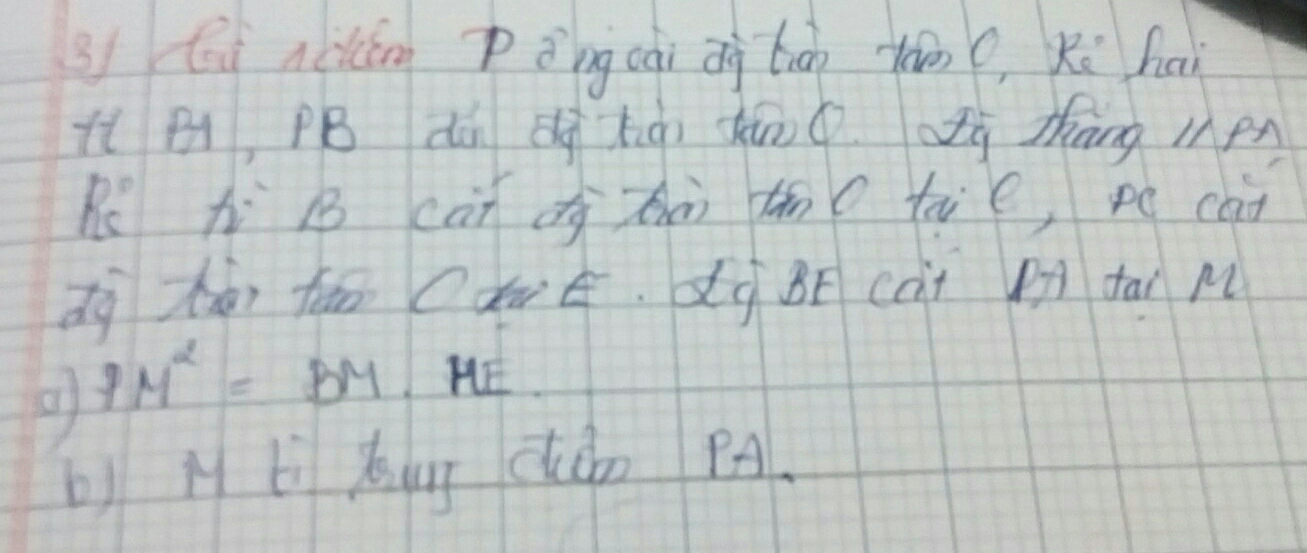 3/ Từ điểm P ở ngoài đg tròn tâm O, Kẻ hai
tt PA, PB đến đg tròn tâm O. Đg thẳng // PA
Kẻ từ B cắt đg tròn tâm O tại C, PC cắt
đg tròn tâm O tại E. Đg BE cắt PA tại M
a) PM² = BM. ME.
b) M là trung điểm PA.